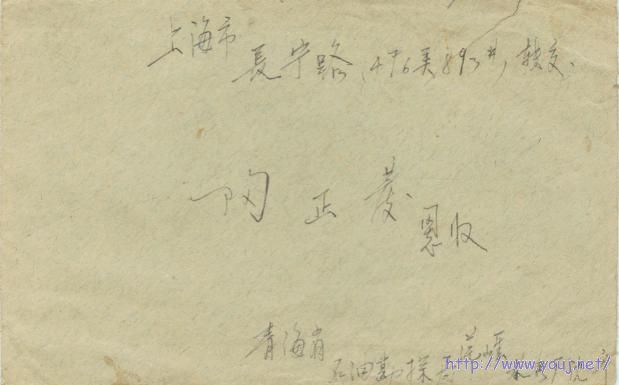 上海市
長宁路 476弄89号 转交
陶正菱
恩收
青海省
石油勘探
茫崖
http://www.youj.net/